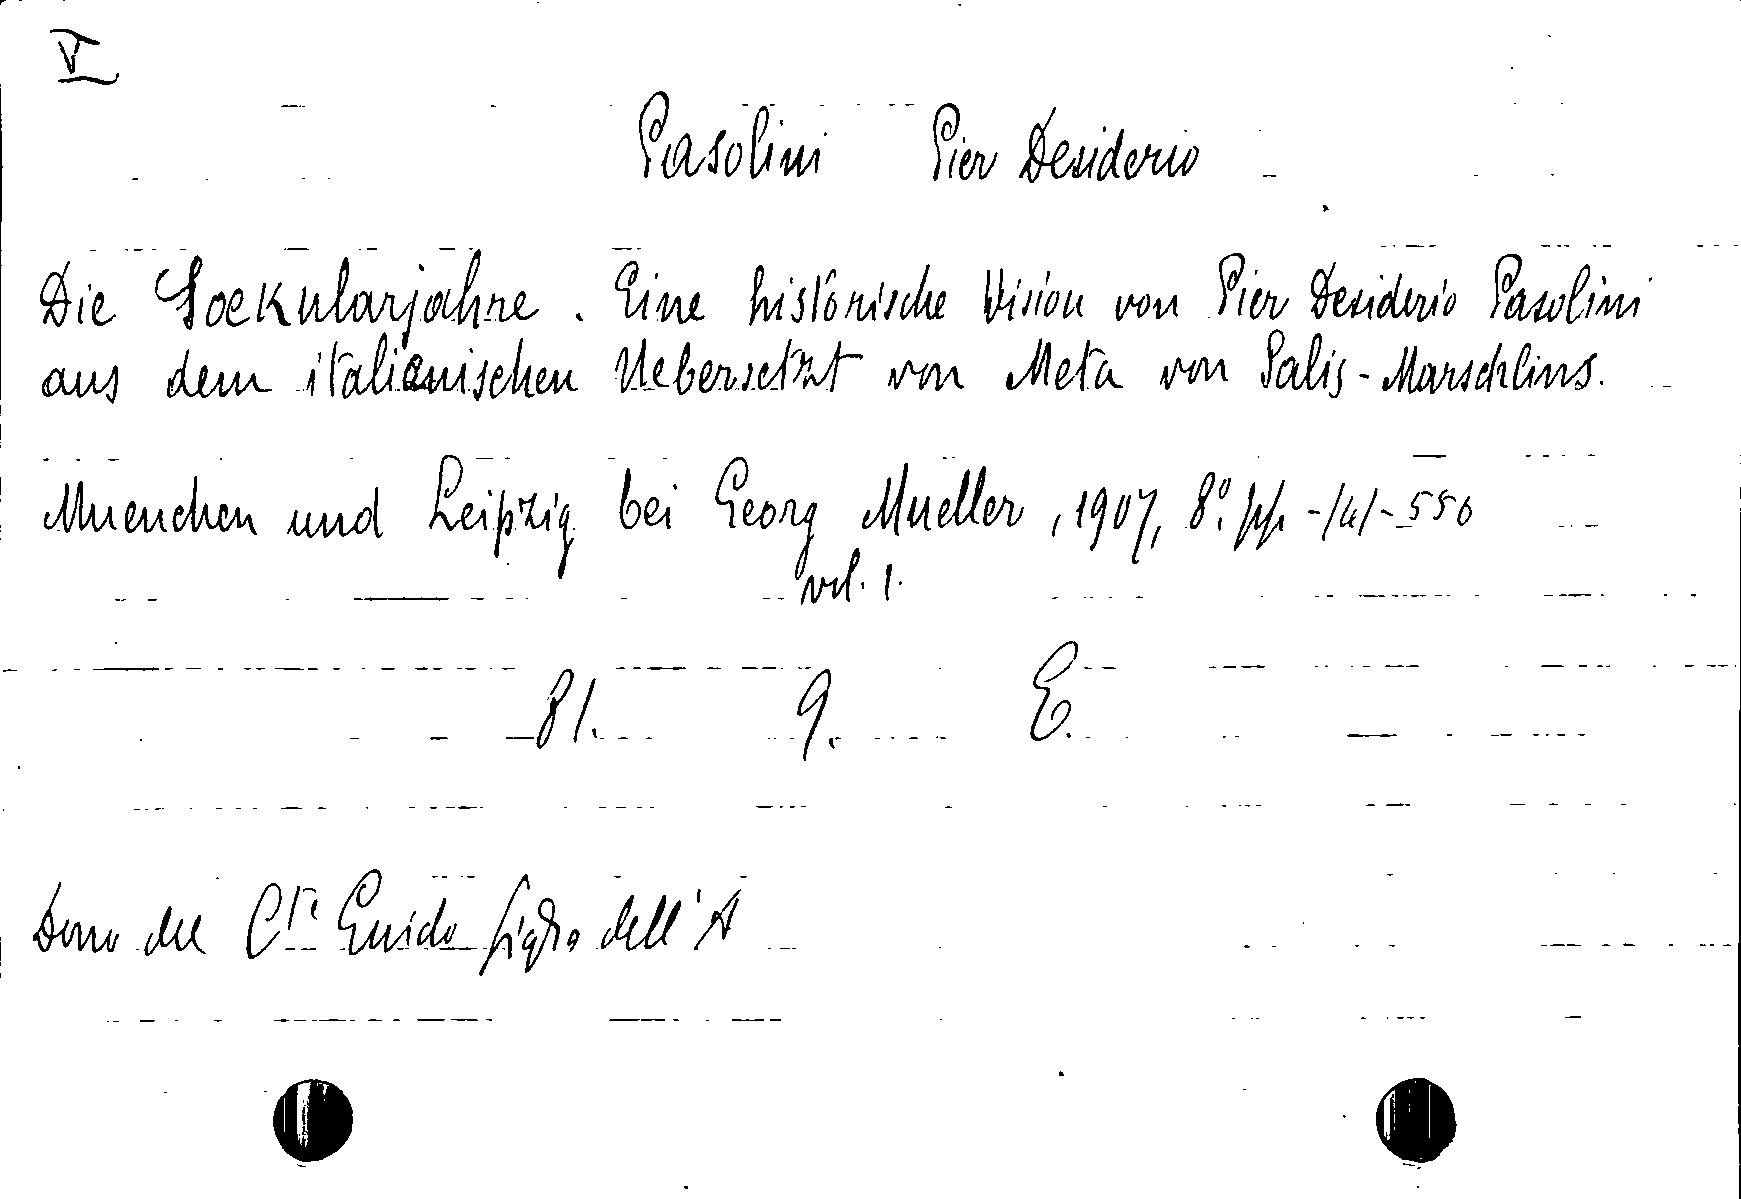 V
Pasolini Pier Desiderio
Die Soekularjahre. Eine historische Vision von Pier Desiderio Pasolini
aus dem italienischen Uebersetzt von Meta von Salis-Marschlins.
Muenchen und Leipzig bei Georg Mueller, 1907, 8º. pp -/4/- 550
vol. 1.
81. 9. E.
Dono del Cte Guido figlio dell'A